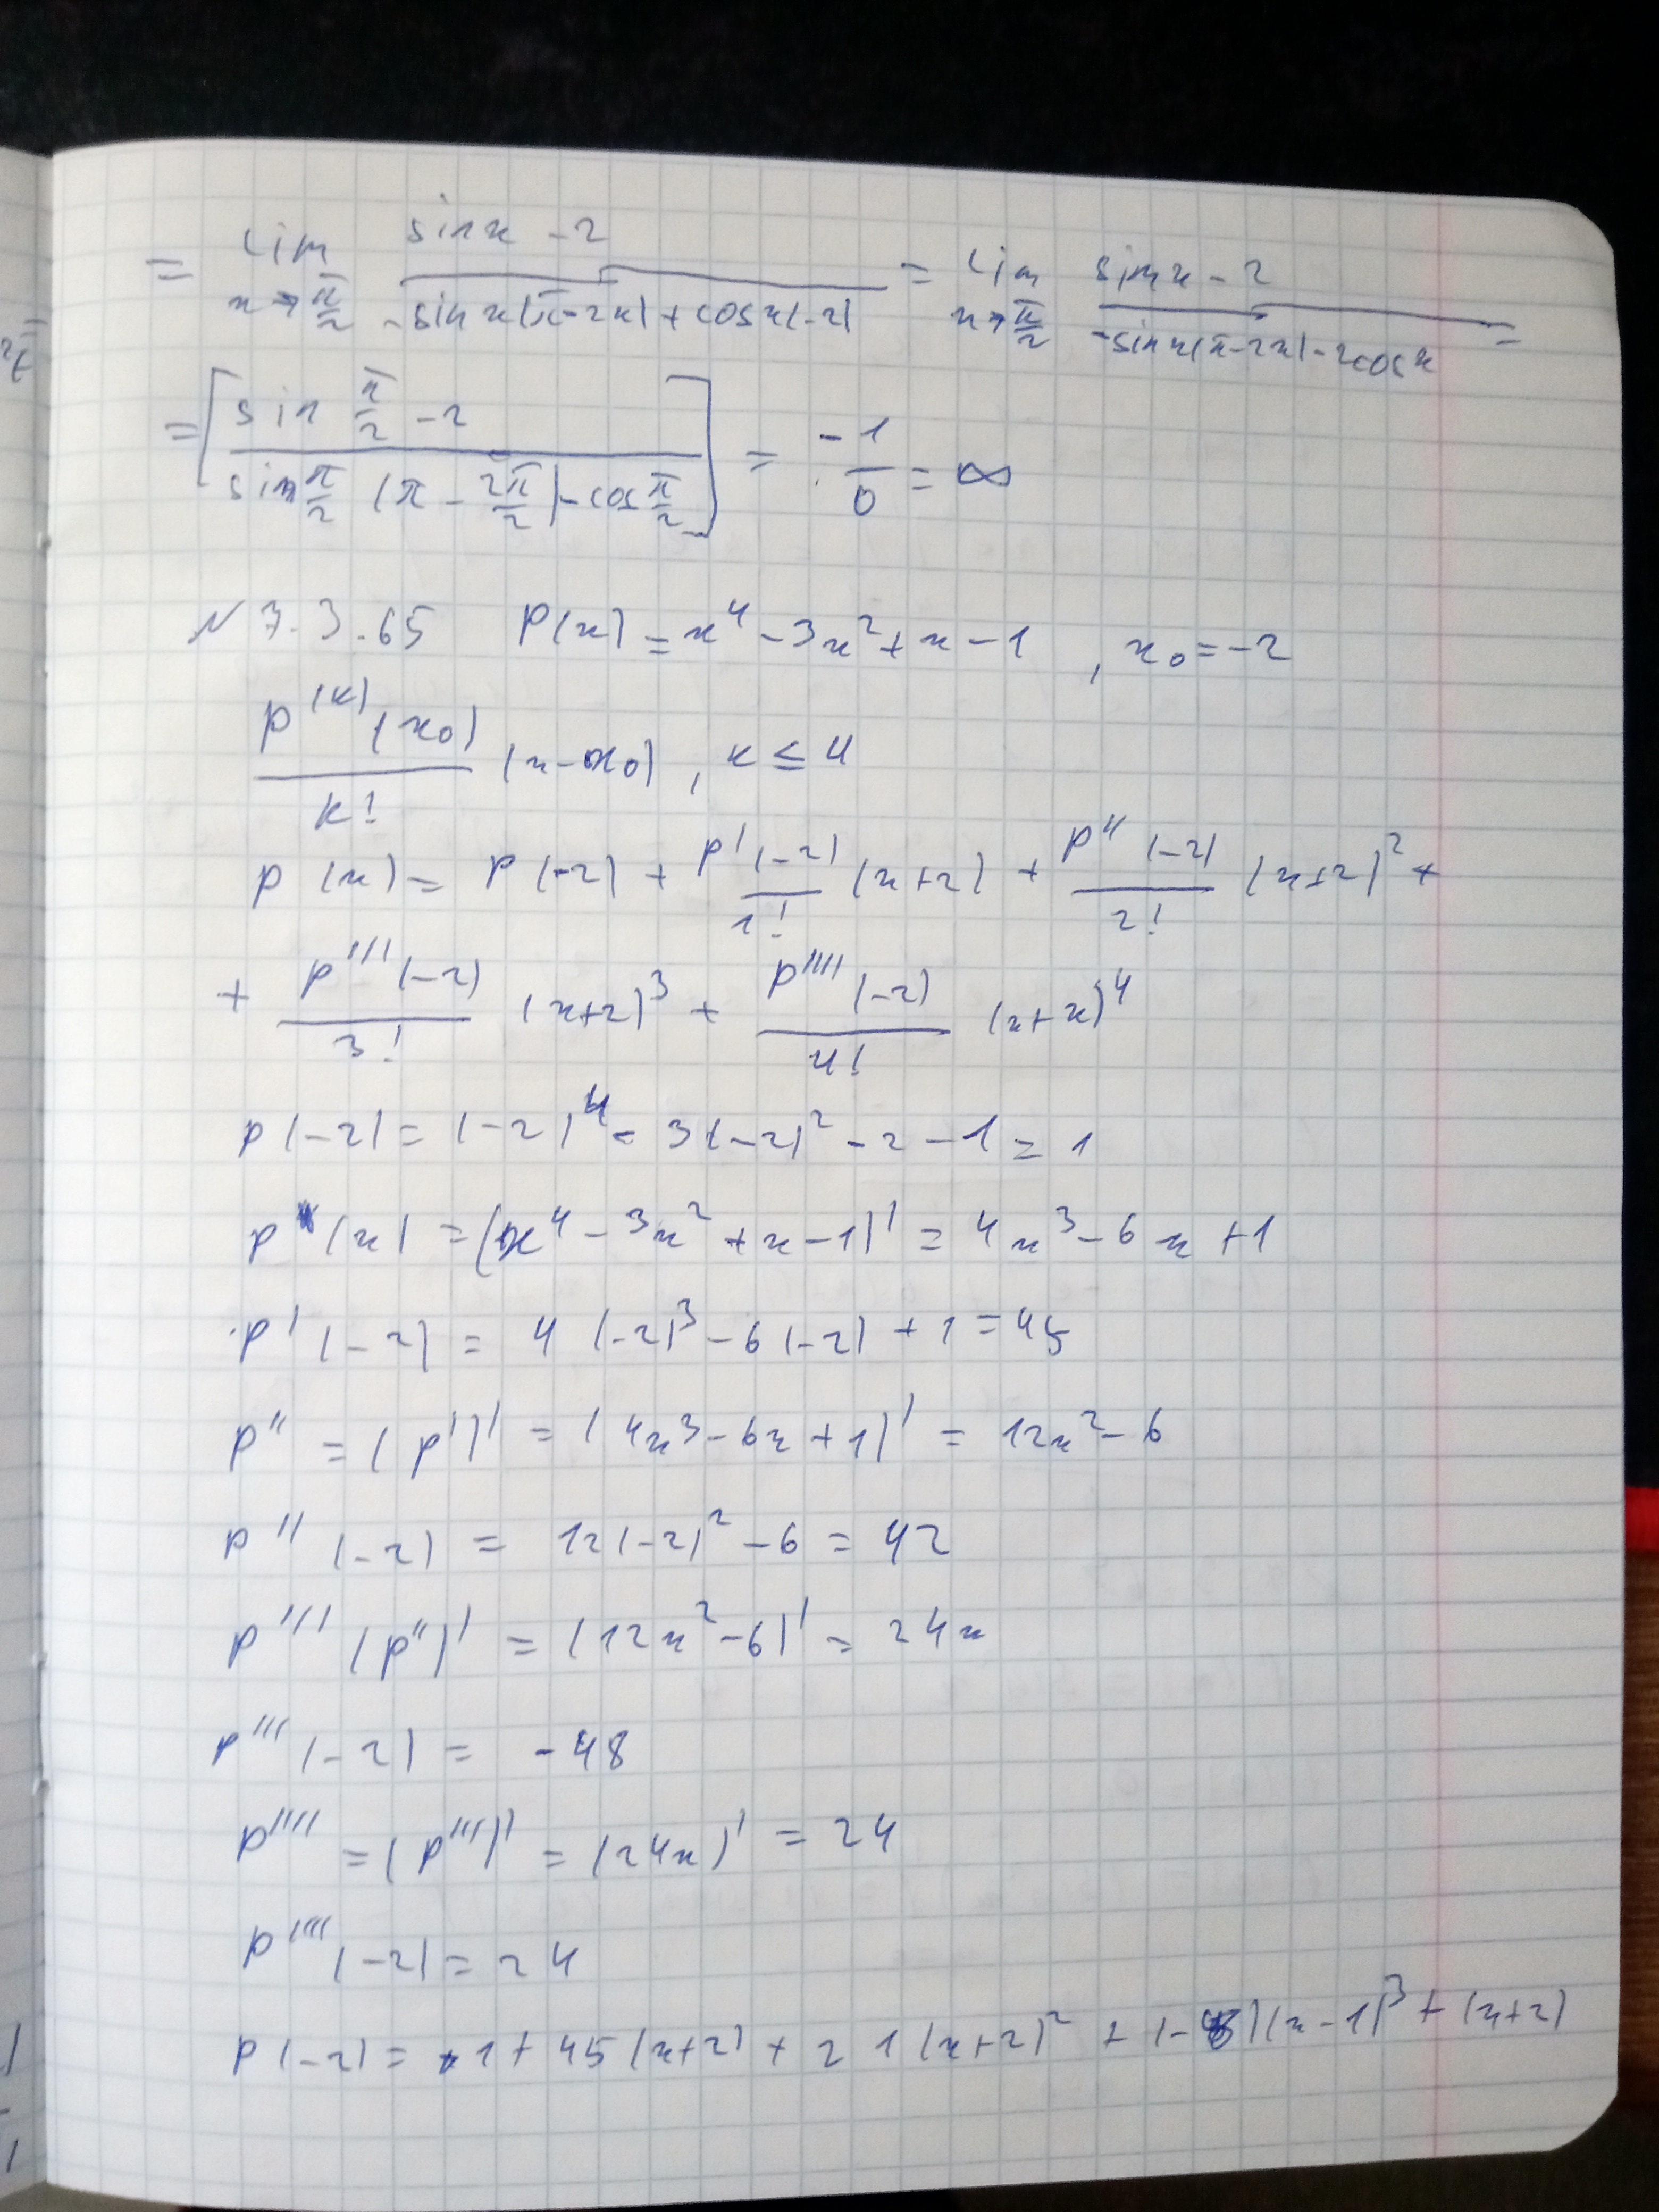 = lim x→π/2 (sin x - 2)/(-sin x(π-2x)+cos x(-2)) = lim x→π/2 (sin x - 2)/(-sin x(π-2x)-2cos x) =
= [(sin π/2 - 2)/(sin π/2 (π - 2π/2) - cos π/2)] = -1/0 = ∞
N 7.3.65 P(x) = x^4 - 3x^2 + x - 1 , x_0 = -2
P^(k)(x_0)/k! (x-x_0) , k ≤ 4
P(x) = P(-2) + P'(-2)/1! (x+2) + P''(-2)/2! (x+2)^2 +
+ P'''(-2)/3! (x+2)^3 + P''''(-2)/4! (x+x)^4
P(-2) = (-2)^4 - 3(-2)^2 - 2 - 1 = 1
P'(x) = (x^4 - 3x^2 + x - 1)' = 4x^3 - 6x + 1
P'(-2) = 4(-2)^3 - 6(-2) + 1 = 45
P'' = (P')' = (4x^3 - 6x + 1)' = 12x^2 - 6
P''(-2) = 12(-2)^2 - 6 = 42
P''' (P'')' = (12x^2 - 6)' = 24x
P'''(-2) = -48
P'''' = (P''')' = (24x)' = 24
P''''(-2) = 24
P(-2) = 1 + 45(x+2) + 21(x+2)^2 + (-8)(x-1)^3 + (x+2)